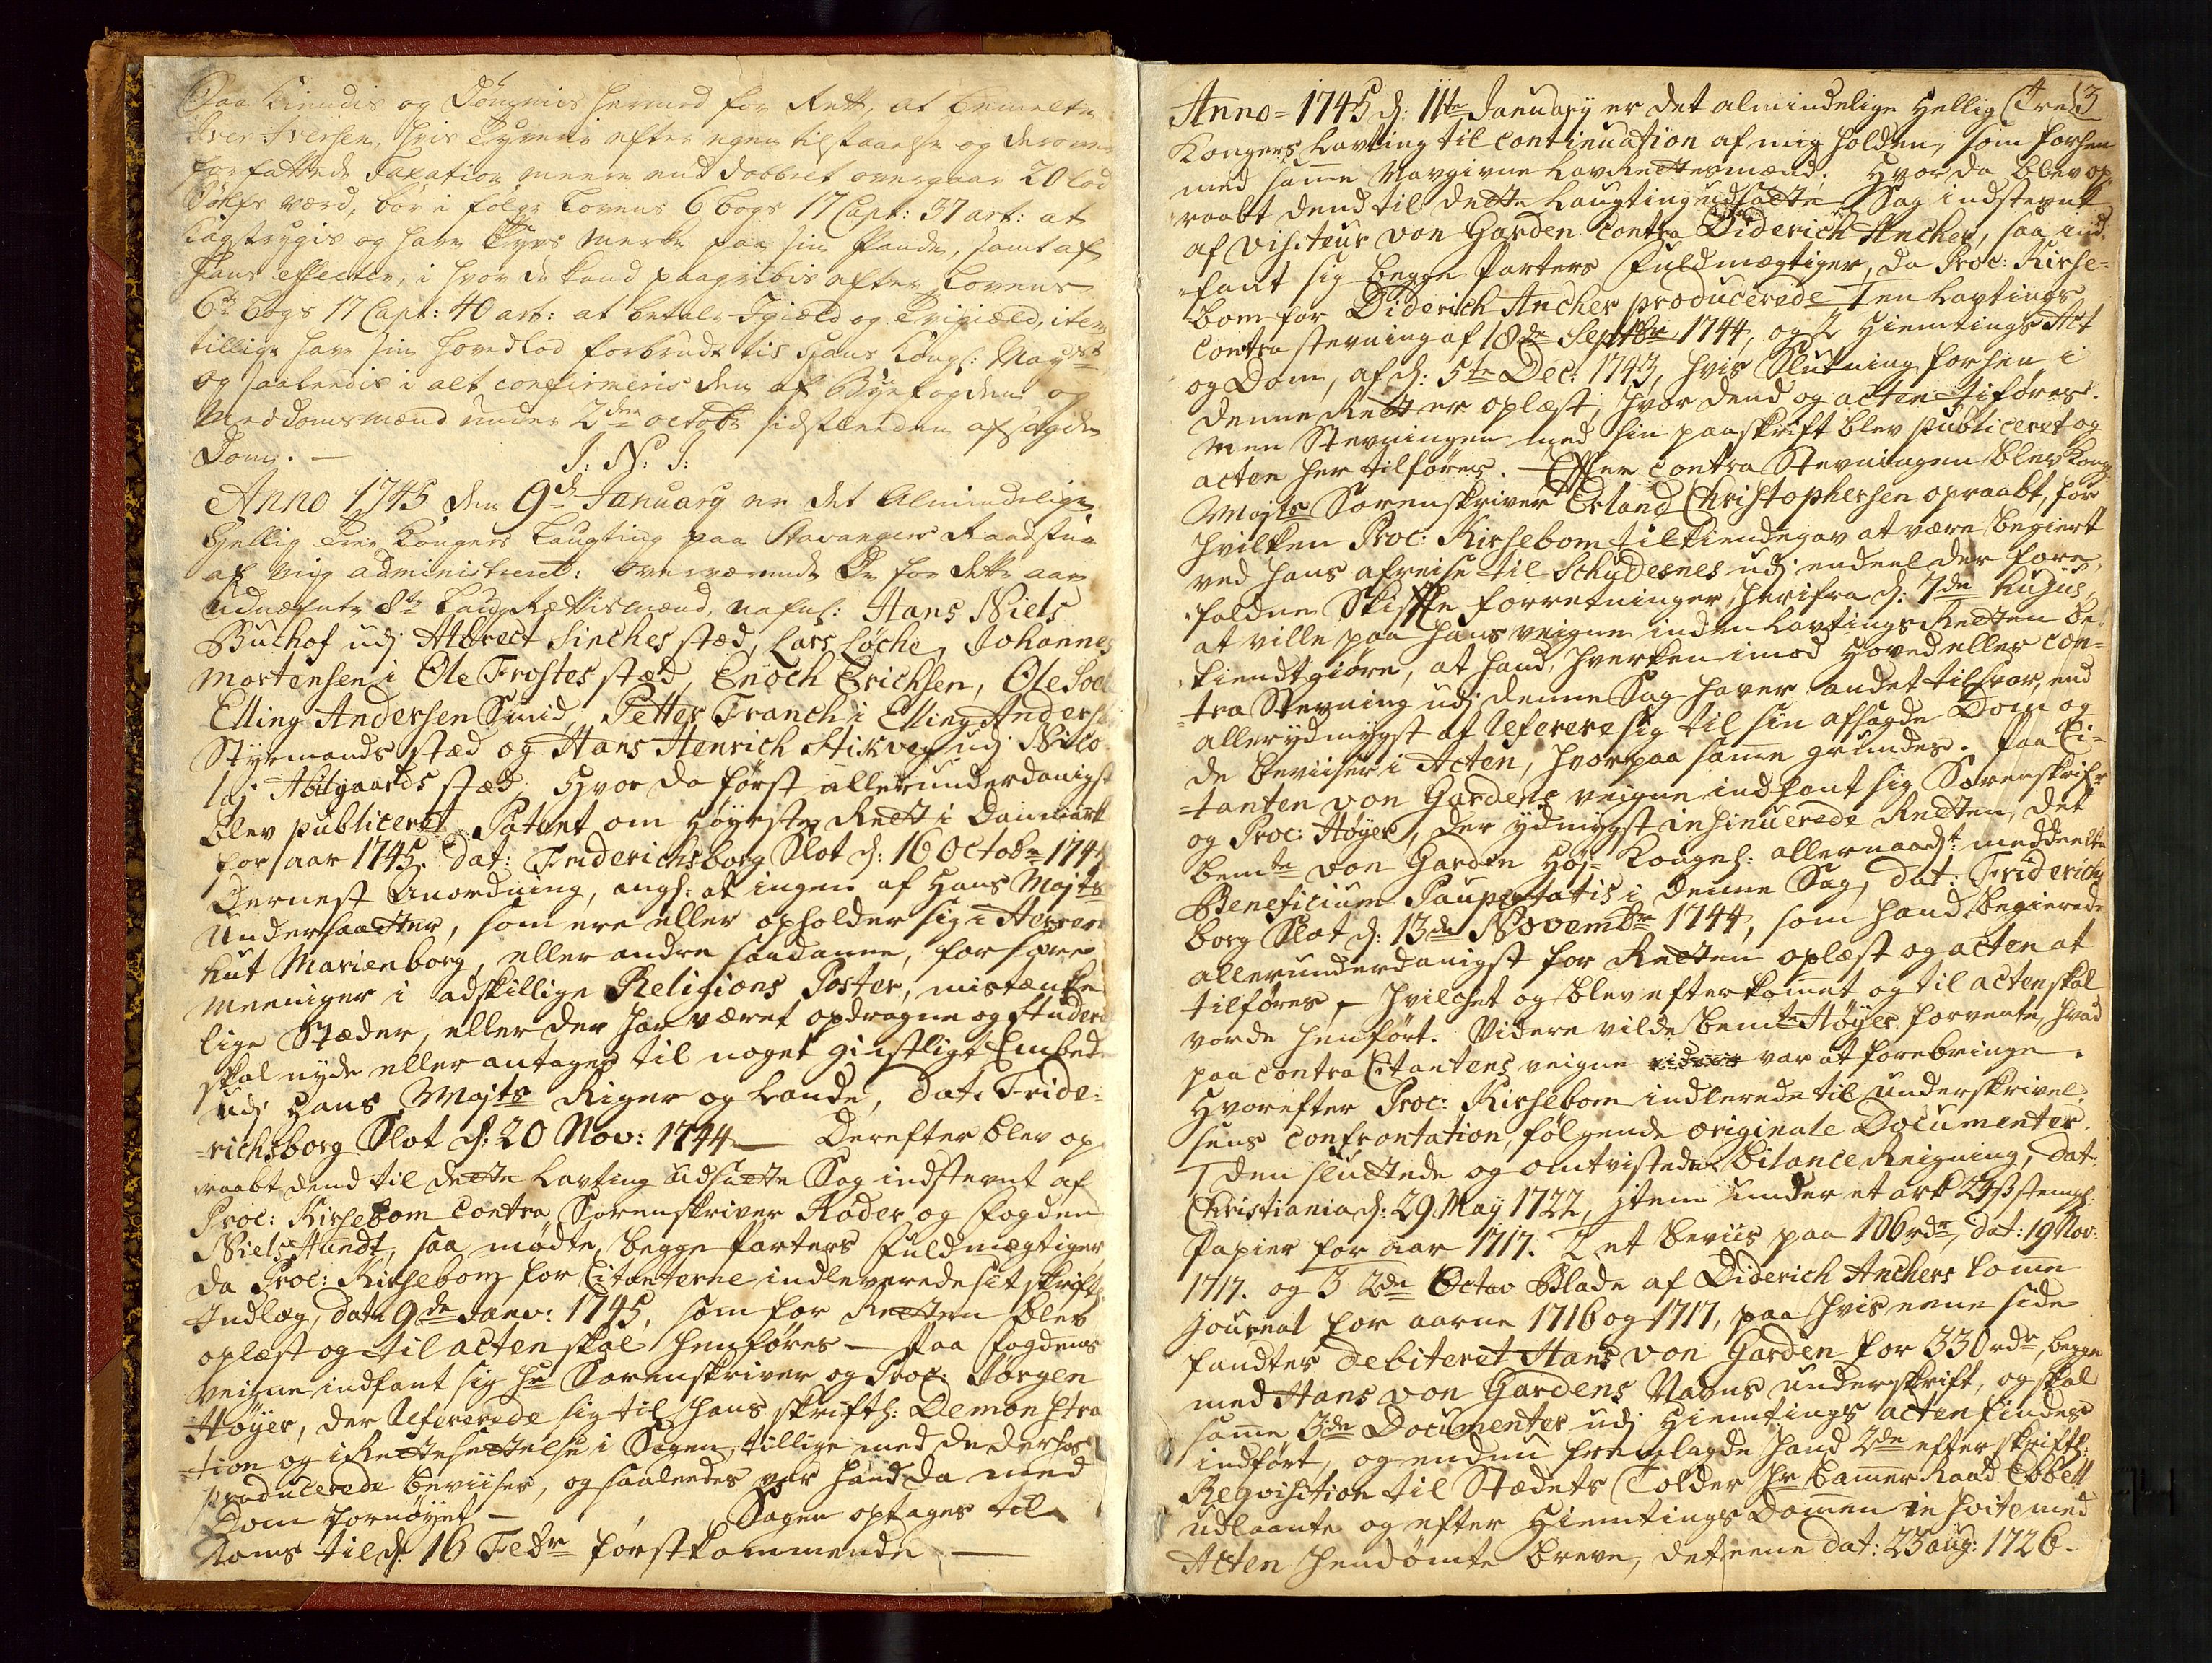 Saa kiendis og Dømmis hermed for Rett, at bemelte
Iver Iversen, hvis Tyveri efter egen tilstaaelse og derover
forfattede Taxation meere end dobbelt overgaar 20 lod
Sølfs værd, bør i følge Lovens 6 bogs 17 Capt: 37 art: at
Kagstrygis og have Tyvs Merke paa sin Pande, samt af
hans effecter, i hvor de kand paagribis efter Lovens
6te bogs 17 Capt: 40 art: at betale Igield og Tvigield, item
tillige have sin hovedlod forbrudt til Hans Kongl: Mayst
og saaledis i alt confirmeris den af Byefogden og
Meddomsmænd under 2den octobr sidstleeden afsagde
Dom. —
J: N: J:
Anno 1745 den 9de January er det Almindelige
Hellig Tree Kongers Laugting paa Stavangers Raadstue
af mig administreret: overværende De for dette aar
udnæfnte 8te Laug Rettismænd, nafnl: Hans Niels
Buchof udj Albrect Sinches stæd, Lars Løche, Johannes
Mortensen i Ole Frostes stæd, Enoch Erichsen, Ole
Elling Andersen Smid, Petter Franch i Elling Anders:
Styrmands stæd og Hans Henrich Stikver udj Nico-
laj Abilgaards stæd, Hvor da først allerunderdanigst
blev publiceret Patent om Høyeste Rett i Danmark
for aar 1745. dat: Friderichsborg Slot d: 16 Octobr 1744
Dernest Anordning, angl: at ingen af Hans Majts
Undersaatter, som ere eller opholder sig i Herren
hut Marienborg, eller andre saadanne, for
meeninger i adskillige Religions Poster, mistænke
lige Stæder, eller der har været opdragne og studeret
skal nyde eller antages til noget Geistligt Embede
udj Hans Majts Riger og Lande, dat. Fride-
=richsborg Slot d: 20 Nov: 1744 — Derefter blev op
raabt dend til dette Lavting udsatte Sag indstevnt af
Proc: Kirsebom Contra Sorenskriver Rader og Fogden
Niels Hundt, saa mødte begge Parters Fuldmægtiger,
da Proc: Kirsebom for Citanterne indleverede sit skriftl:
Indlæg, dat. 9de Janv: 1745, som for Retten blev
oplæst og til acten skal henføres — Paa Fogdens
veigne indfant sig hr Sorenskriver og Proc: Jørgen
Høyer, der refererede sig til hans skriftl: Demonstra
=tion og i Rettesettelse i Sagen, tillige med de derhos
producerede Beviiser, og saaledes var hand da med
Dom fornøyet — Sagen optages til
Doms til d. 16 Febr førstkommende —
3
Anno= 1745 d: 11te January er det almindelige Hellig Tre
Kongers Lavting til continuation af mig holden, som forhen
med samme Navgivne LavRettesmænd; Hvor da blev op
raabt dend til dette Laugting udsatte Sag indstevnt
af Visiteur von Garden contra Diderich Ancher, saa ind
=fant sig begge Parters Fuldmægtiger, da Proc: Kirse=
bom for Diderich Ancher producerede 1 en Lavtings
Contra stevning af 18de Septbr 1744, og 2 Hiemtings Act
og Dom, af d: 5te Dec: 1743, hvis Slutning forhen i
denne Rett er oplæst, hvor dend og acten tilføres.
Men Stevningen med sin paaskrift blev publiceret og
acten her tilføres. — Efter Contra Stevningen blev Kongl:
Majts Sorenskriver Erland Christophersen opraabt, for
hvilken Proc: Kirsebom tilkiendegav at være begiert
ved hans afreise til Schudesnes udj endeel der fore
=faldne Skifte forretninger, herifra d: 7de hujus,
at ville paa hans veigne inden Lavtings Retten be
kiendtgiøre, at hand, hverken imod Hoved eller Con=
=tra Stevning udj denne Sag haver andet til svar, end
allerydmygst at referere sig til sin afsagde Dom og
de beviiser i Acten, hvorpaa samme grundes. Paa Ci=
=tanten von Gardens veigne indfant sig Sorenskriver
og Proc: Høyer, der ydmygst insinuerede Retten, det
bemte von Garden Høj= Kongel: allernaadt: meddeelte
Beneficium Paupertatis i denne Sag, dat: Friderichs
borg Slot d: 13de Novembr 1744, som hand begierede
allerunderdanigst for Retten oplæst og acten at
tilføres, — hvilchet og blev efterkommet og til acten skal
vorde henført. Videre vilde bemte Høyer forvente, hvad
paa contra Citantens veigne var at forebringe.
Hvorefter Proc: Kirsebom indlerede til underskrivel
sens Confrontation, følgende originale Documenter.
1 den sluttede og omtvistede Bilance Reigning, dat:
Christiania d: 29. May 1722, item under et ark 24 ß stempl:
Papier for aar 1717. 2 et Beviis paa 106 rdr, dat: 19 Nov:
1717. og 3 2de Octav Blade af Diderich Anchers Lomme
journal for aarne 1716 og 1717, paa hvis eene side
fandtes debiteret Hans von Garden for 330 rdr, begge
med Hans von Gardens Navns underskrift, og skal
samme 3de Documenter udj Hiemtings acten findes
indført, og endnu fremlagde hand 2de efter skriftl:
Reqvisition til Stædets Tolder Hr Cammer Raad Ebbell
udlaante og efter Hiemtings Domen in svite med
Acten hendømte breve, det eene dat: 25 aug: 1726.